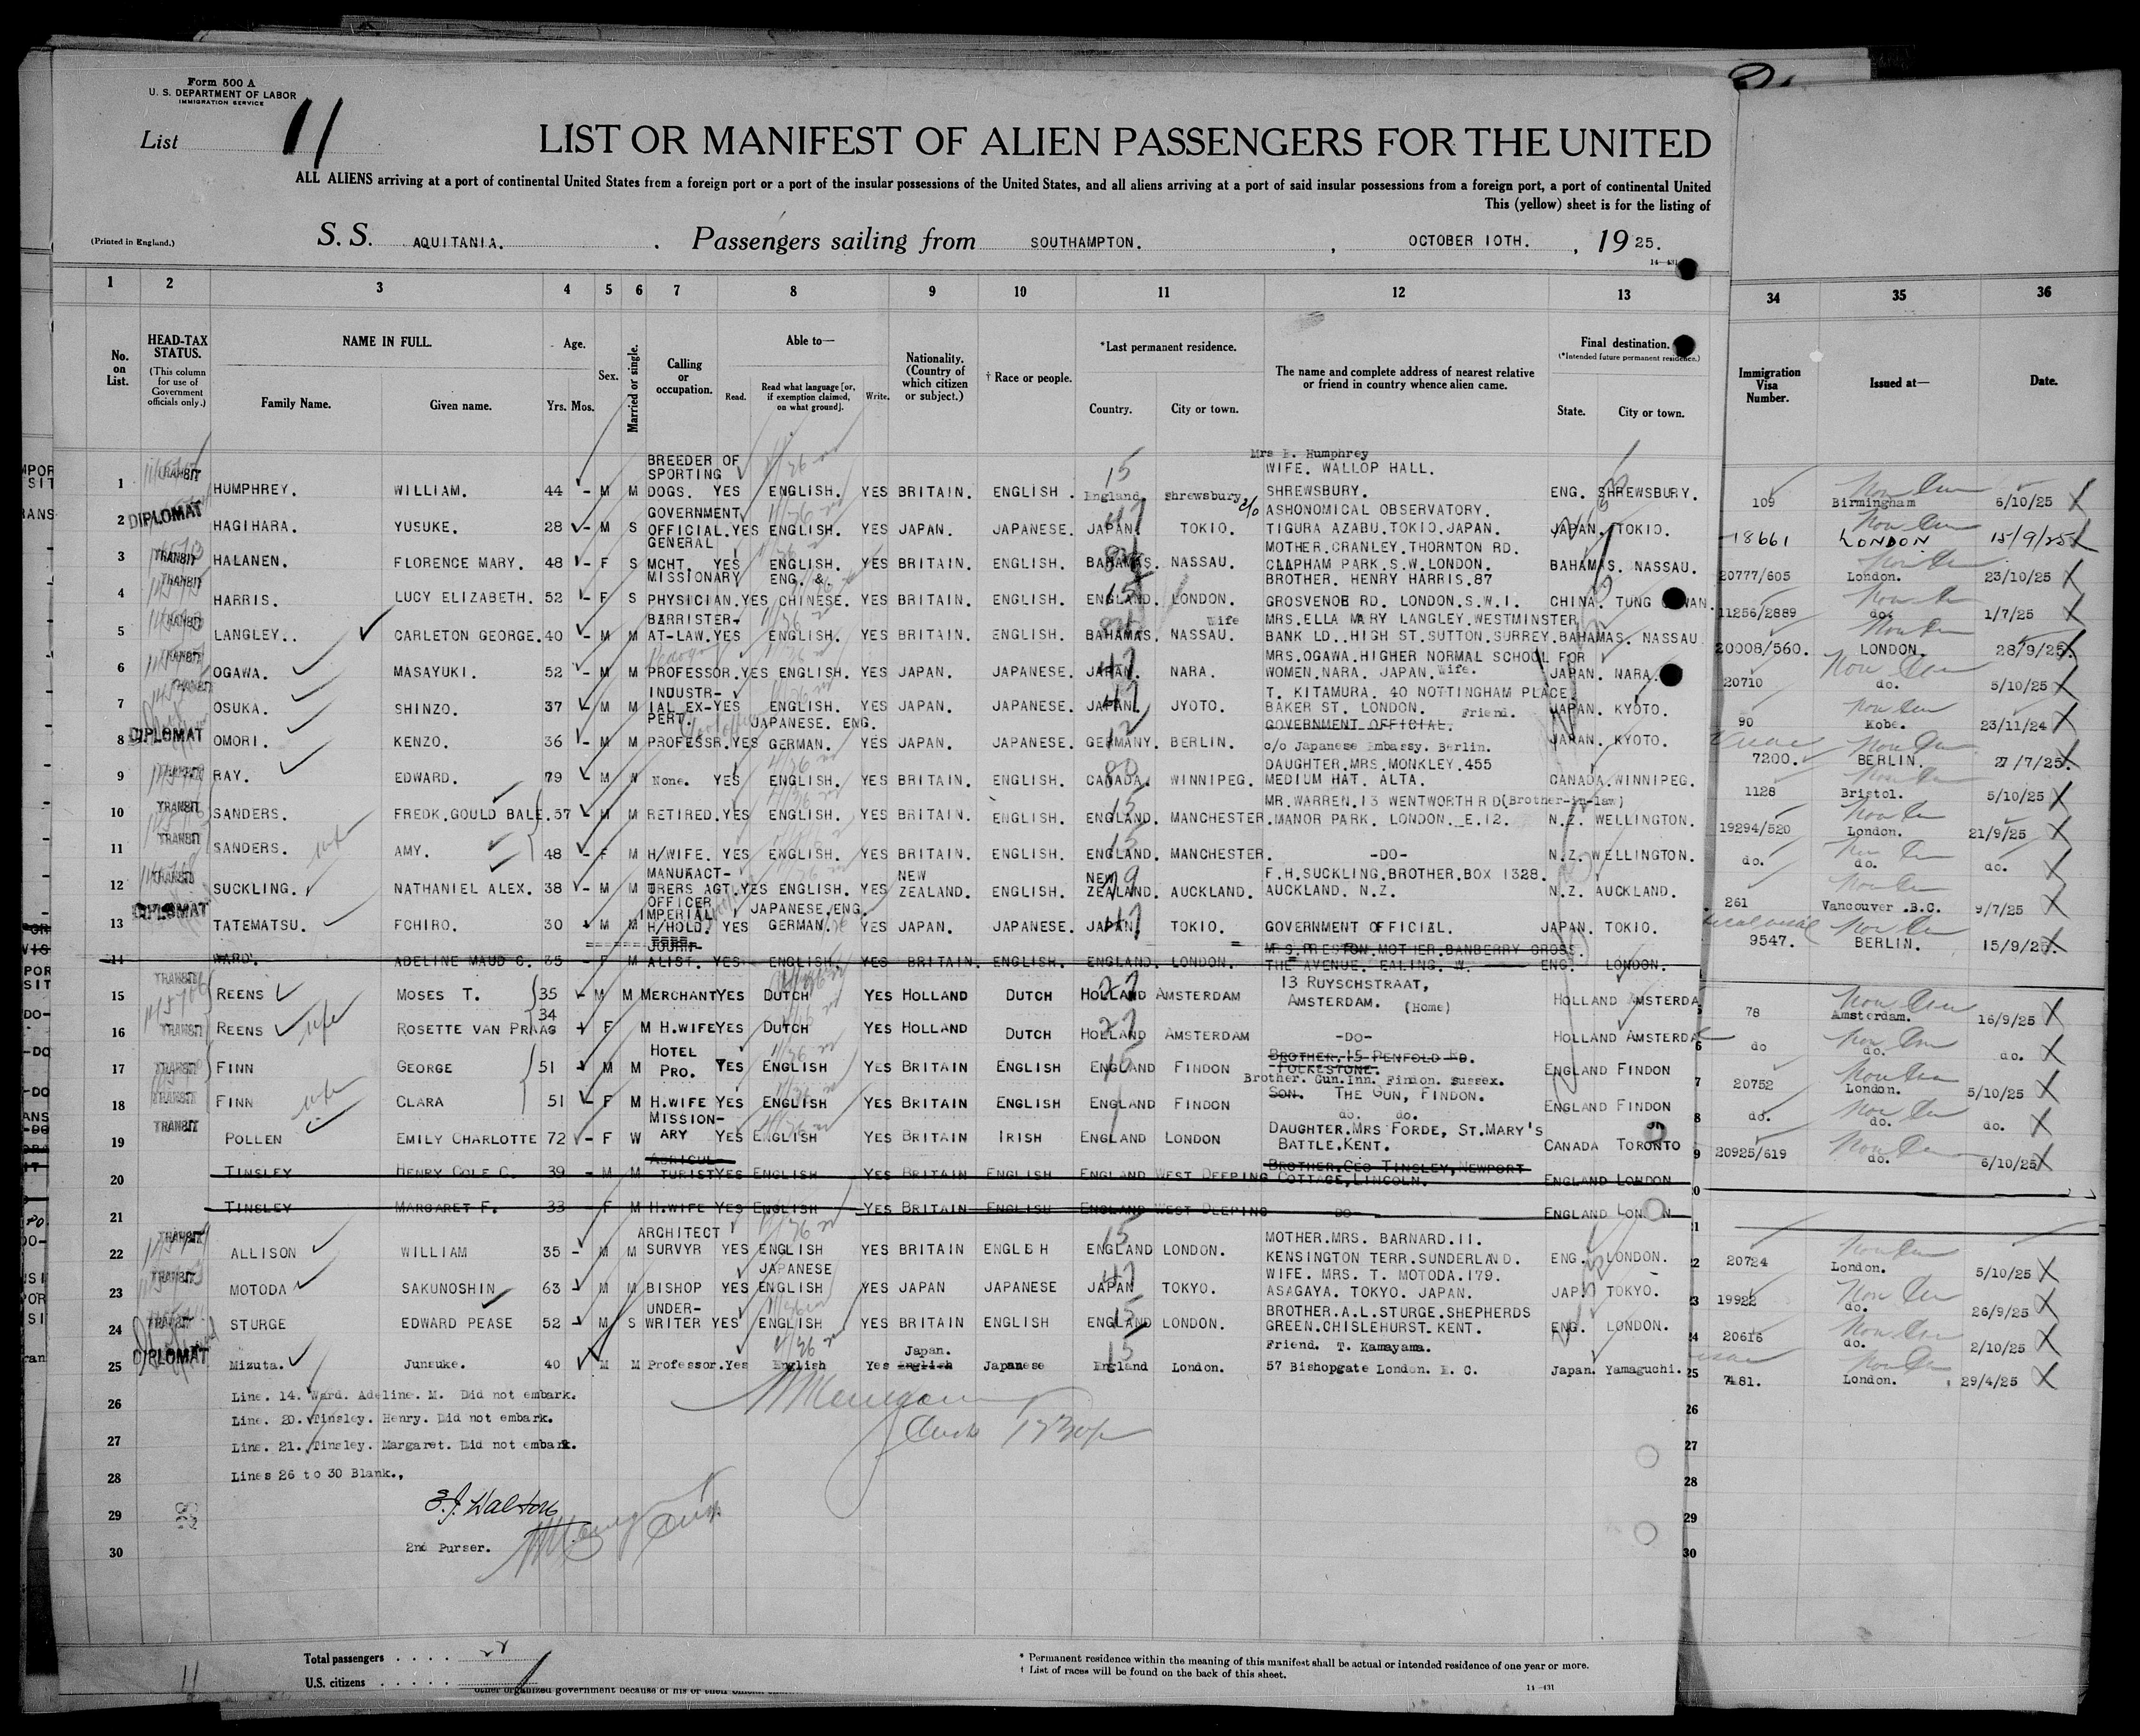 Form 500 A
U. S. DEPARTMENT OF LABOR
IMMIGRATION SERVICE
List 11
LIST OR MANIFEST OF ALIEN PASSENGERS FOR THE UNITED
ALL ALIENS arriving at a port of continental United States from a foreign port or a port of the insular possessions of the United States, and all aliens arriving at a port of said insular possessions from a foreign port, a port of continental United
This (yellow) sheet is for the listing of
(Printed in England.) S. S. AQUITANIA. Passengers sailing from SOUTHAMPTON. , OCTOBER 10TH. , 19 25.
1 2 3 4 5 6 7 8 9 10 11 12 13 34 35 36
No. on List. HEAD-TAX STATUS. (This column for use of Government officials only.) NAME IN FULL. Family Name. Given name. Age. Yrs. Mos. Sex. Married or single. Calling or occupation. Able to— Read. Read what language [or, if exemption claimed, on what ground]. Write. Nationality. (Country of which citizen or subject.) † Race or people. *Last permanent residence. Country. City or town. The name and complete address of nearest relative or friend in country whence alien came. Final destination. (*Intended future permanent residence.) State. City or town. Immigration Visa Number. Issued at— Date.
1 TRANSIT HUMPHREY. WILLIAM. 44 - M M BREEDER OF SPORTING DOGS. YES ENGLISH. YES BRITAIN. ENGLISH. 15 England. Shrewsbury Mrs E. Humphrey WIFE. WALLOP HALL. SHREWSBURY. ENG. SHREWSBURY. 109 Birmingham 6/10/25
2 DIPLOMAT HAGIHARA. YUSUKE. 28 - M S GOVERNMENT OFFICIAL. YES ENGLISH. YES JAPAN. JAPANESE. JAPAN 47 TOKIO. c/o ASHONOMICAL OBSERVATORY. TIGURA AZABU.TOKIO.JAPAN. JAPAN. TOKIO. 18661 LONDON 15/9/25
3 TRANSIT HALANEN. FLORENCE MARY. 48 - F S GENERAL MCHT. YES ENGLISH. YES BRITAIN. ENGLISH. BAHAMAS. NASSAU. MOTHER.CRANLEY.THORNTON RD. CLAPHAM PARK.S.W.LONDON. BAHAMAS. NASSAU. 20777/605 London. 23/10/25
4 TRANSIT HARRIS. LUCY ELIZABETH. 52 - F S MISSIONARY PHYSICIAN. YES ENG. &. CHINESE. YES BRITAIN. ENGLISH. ENGLAND. 15 LONDON. BROTHER. HENRY HARRIS.87 GROSVENOR RD. LONDON.S.W.1. CHINA. TUNG 11256/2889 do. 1/7/25
5 TRANSIT LANGLEY.. CARLETON GEORGE. 40 - M M BARRISTER-AT-LAW. YES ENGLISH. YES BRITAIN. ENGLISH. BAHAMAS. NASSAU. Wife MRS.ELLA MARY LANGLEY.WESTMINSTER BANK LD..HIGH ST.SUTTON.SURREY. BAHAMAS. NASSAU. 20008/560. LONDON. 28/9/25
6 TRANSIT OGAWA. MASAYUKI. 52 - M M PROFESSOR. YES ENGLISH. YES JAPAN. JAPANESE. JAPAN. 47 NARA. MRS.OGAWA.HIGHER NORMAL SCHOOL FOR WOMEN.NARA. JAPAN. Wife. JAPAN. NARA. 20710 do. 5/10/25
7 TRANSIT OSUKA. SHINZO. 37 - M M INDUSTR-IAL EX-PERT. YES ENGLISH. YES JAPAN. JAPANESE. JAPAN 47 JYOTO. T. KITAMURA. 40 NOTTINGHAM PLACE. BAKER ST. LONDON. Friend. JAPAN. KYOTO. 90 Kobe. 23/11/24
8 DIPLOMAT OMORI. KENZO. 36 - M M PROFESSR. YES JAPANESE. ENG. GERMAN. YES JAPAN. JAPANESE. GERMANY. 12 BERLIN. GOVERNMENT OFFICIAL. c/o Japanese Embassy. Berlin. JAPAN. KYOTO. 7200. BERLIN. 27/7/25.
9 TRANSIT RAY. EDWARD. 79 - M W None. YES ENGLISH. YES BRITAIN. ENGLISH. CANADA. 80 WINNIPEG. DAUGHTER.MRS.MONKLEY.455 MEDIUM HAT. ALTA. CANADA.WINNIPEG. 1128 Bristol. 5/10/25
10 TRANSIT SANDERS. FREDK.GOULD BALE. 57 - M M RETIRED. YES ENGLISH. YES BRITAIN. ENGLISH. ENGLAND. 15 MANCHESTER. MR.WARREN.13 WENTWORTH R D (Brother-in-law) MANOR PARK. LONDON. E.12. N.Z. WELLINGTON. 19294/520 London. 21/9/25
11 TRANSIT SANDERS. wife AMY. 48 - F M H/WIFE. YES ENGLISH. YES BRITAIN. ENGLISH. ENGLAND. 15 MANCHESTER. -DO- N.Z. WELLINGTON. do. do. do.
12 TRANSIT SUCKLING. NATHANIEL ALEX. 38 - M M MANUFACT-URERS AGT. YES ENGLISH. YES NEW ZEALAND. ENGLISH. NEW ZEALAND. 79 AUCKLAND. F.H.SUCKLING.BROTHER.BOX 1328. AUCKLAND. N.Z. N.Z. AUCKLAND. 261 Vancouver .B.C. 9/7/25
13 DIPLOMAT TATEMATSU. FCHIRO. 30 - M M OFFICER IMPERIAL H/HOLD. YES JAPANESE.ENG. GERMAN. YES JAPAN. JAPANESE. JAPAN 47 TOKIO. GOVERNMENT OFFICIAL. JAPAN. TOKIO. 9547. BERLIN. 15/9/25.
14 WARD. ADELINE MAUD C. 35 - F M JOURN-ALIST. YES ENGLISH. YES BRITAIN. ENGLISH. ENGLAND. LONDON. MRS.PRESTON.MOTHER.BANBERRY CROSS. THE AVENUE. EALING. W. ENG. LONDON.
15 TRANSIT REENS MOSES T. 35 - M M MERCHANT YES DUTCH YES HOLLAND DUTCH HOLLAND 27 AMSTERDAM 13 RUYSCHSTRAAT, AMSTERDAM. (Home) HOLLAND AMSTERDA 78 Amsterdam. 16/9/25
16 TRANSIT REENS wife ROSETTE VAN PRAAG 34 F M H.WIFE YES DUTCH YES HOLLAND DUTCH HOLLAND 27 AMSTERDAM -DO- HOLLAND AMSTERDA do do. do.
17 TRANSIT FINN GEORGE 51 - M M HOTEL PRO. YES ENGLISH YES BRITAIN ENGLISH ENGLAND 15 FINDON BROTHER,15 PENFOLD RD. FOLKESTONE. Brother. Gun.Inn. Findon. Sussex. ENGLAND FINDON 20752 London. 5/10/25
18 TRANSIT FINN wife CLARA 51 - F M H.WIFE YES ENGLISH YES BRITAIN ENGLISH ENGLAND FINDON SON. THE GUN, FINDON. do. do. ENGLAND FINDON do. do. do.
19 TRANSIT POLLEN EMILY CHARLOTTE 72 - F W MISSION-ARY YES ENGLISH YES BRITAIN IRISH ENGLAND LONDON DAUGHTER.MRS FORDE, ST.MARY'S BATTLE.KENT. CANADA TORONTO 20925/619 do. 6/10/25
20 TINSLEY HENRY COLE C. 39 - M M AGRICUL-TURIST YES ENGLISH YES BRITAIN ENGLISH ENGLAND WEST DEEPING BROTHER.GEO TINSLEY,NEWPORT COTTAGE,LINCOLN. ENGLAND LONDON
21 TINSLEY MARGARET F. 33 - F M H.WIFE YES ENGLISH YES BRITAIN ENGLISH ENGLAND WEST DEEPING DO ENGLAND LONDON
22 TRANSIT ALLISON WILLIAM 35 - M M ARCHITECT SURVYR YES ENGLISH YES BRITAIN ENGLISH ENGLAND 15 LONDON. MOTHER.MRS. BARNARD.11. KENSINGTON TERR.SUNDERLAND. ENG. LONDON. 20724 London. 5/10/25
23 TRANSIT MOTODA SAKUNOSHIN 63 - M M BISHOP YES JAPANESE ENGLISH YES JAPAN JAPANESE JAPAN 47 TOKYO. WIFE. MRS. T. MOTODA.179. ASAGAYA. TOKYO. JAPAN. JAP. TOKYO. 19922 do. 26/9/25
24 TRANSIT STURGE EDWARD PEASE 52 - M S UNDER-WRITER YES ENGLISH YES BRITAIN ENGLISH ENGLAND 15 LONDON. BROTHER.A.L.STURGE.SHEPHERDS GREEN.CHISLEHURST.KENT. ENG. LONDON. 20616 do. 2/10/25
25 DIPLOMAT Mizuta. Junsuke. 40 M M Professor. Yes English Yes Japan. English Japanese England 15 London. Friend. T. Kamayama. 57 Bishopgate London. E. C. Japan. Yamaguchi. 7481. London. 29/4/25
26 Line. 14. Ward. Adeline. M. Did not embark.
Line. 20. Tinsley. Henry. Did not embark.
27 Line. 21. Tinsley. Margaret. Did not embark.
28 Lines 26 to 30 Blank.,
29 E.J. Walton
30 2nd Purser.
Total passengers . . . . 22
U.S. citizens . . . . .
* Permanent residence within the meaning of this manifest shall be actual or intended residence of one year or more.
† List of races will be found on the back of this sheet.
other organized government because of his or their
14-431
11